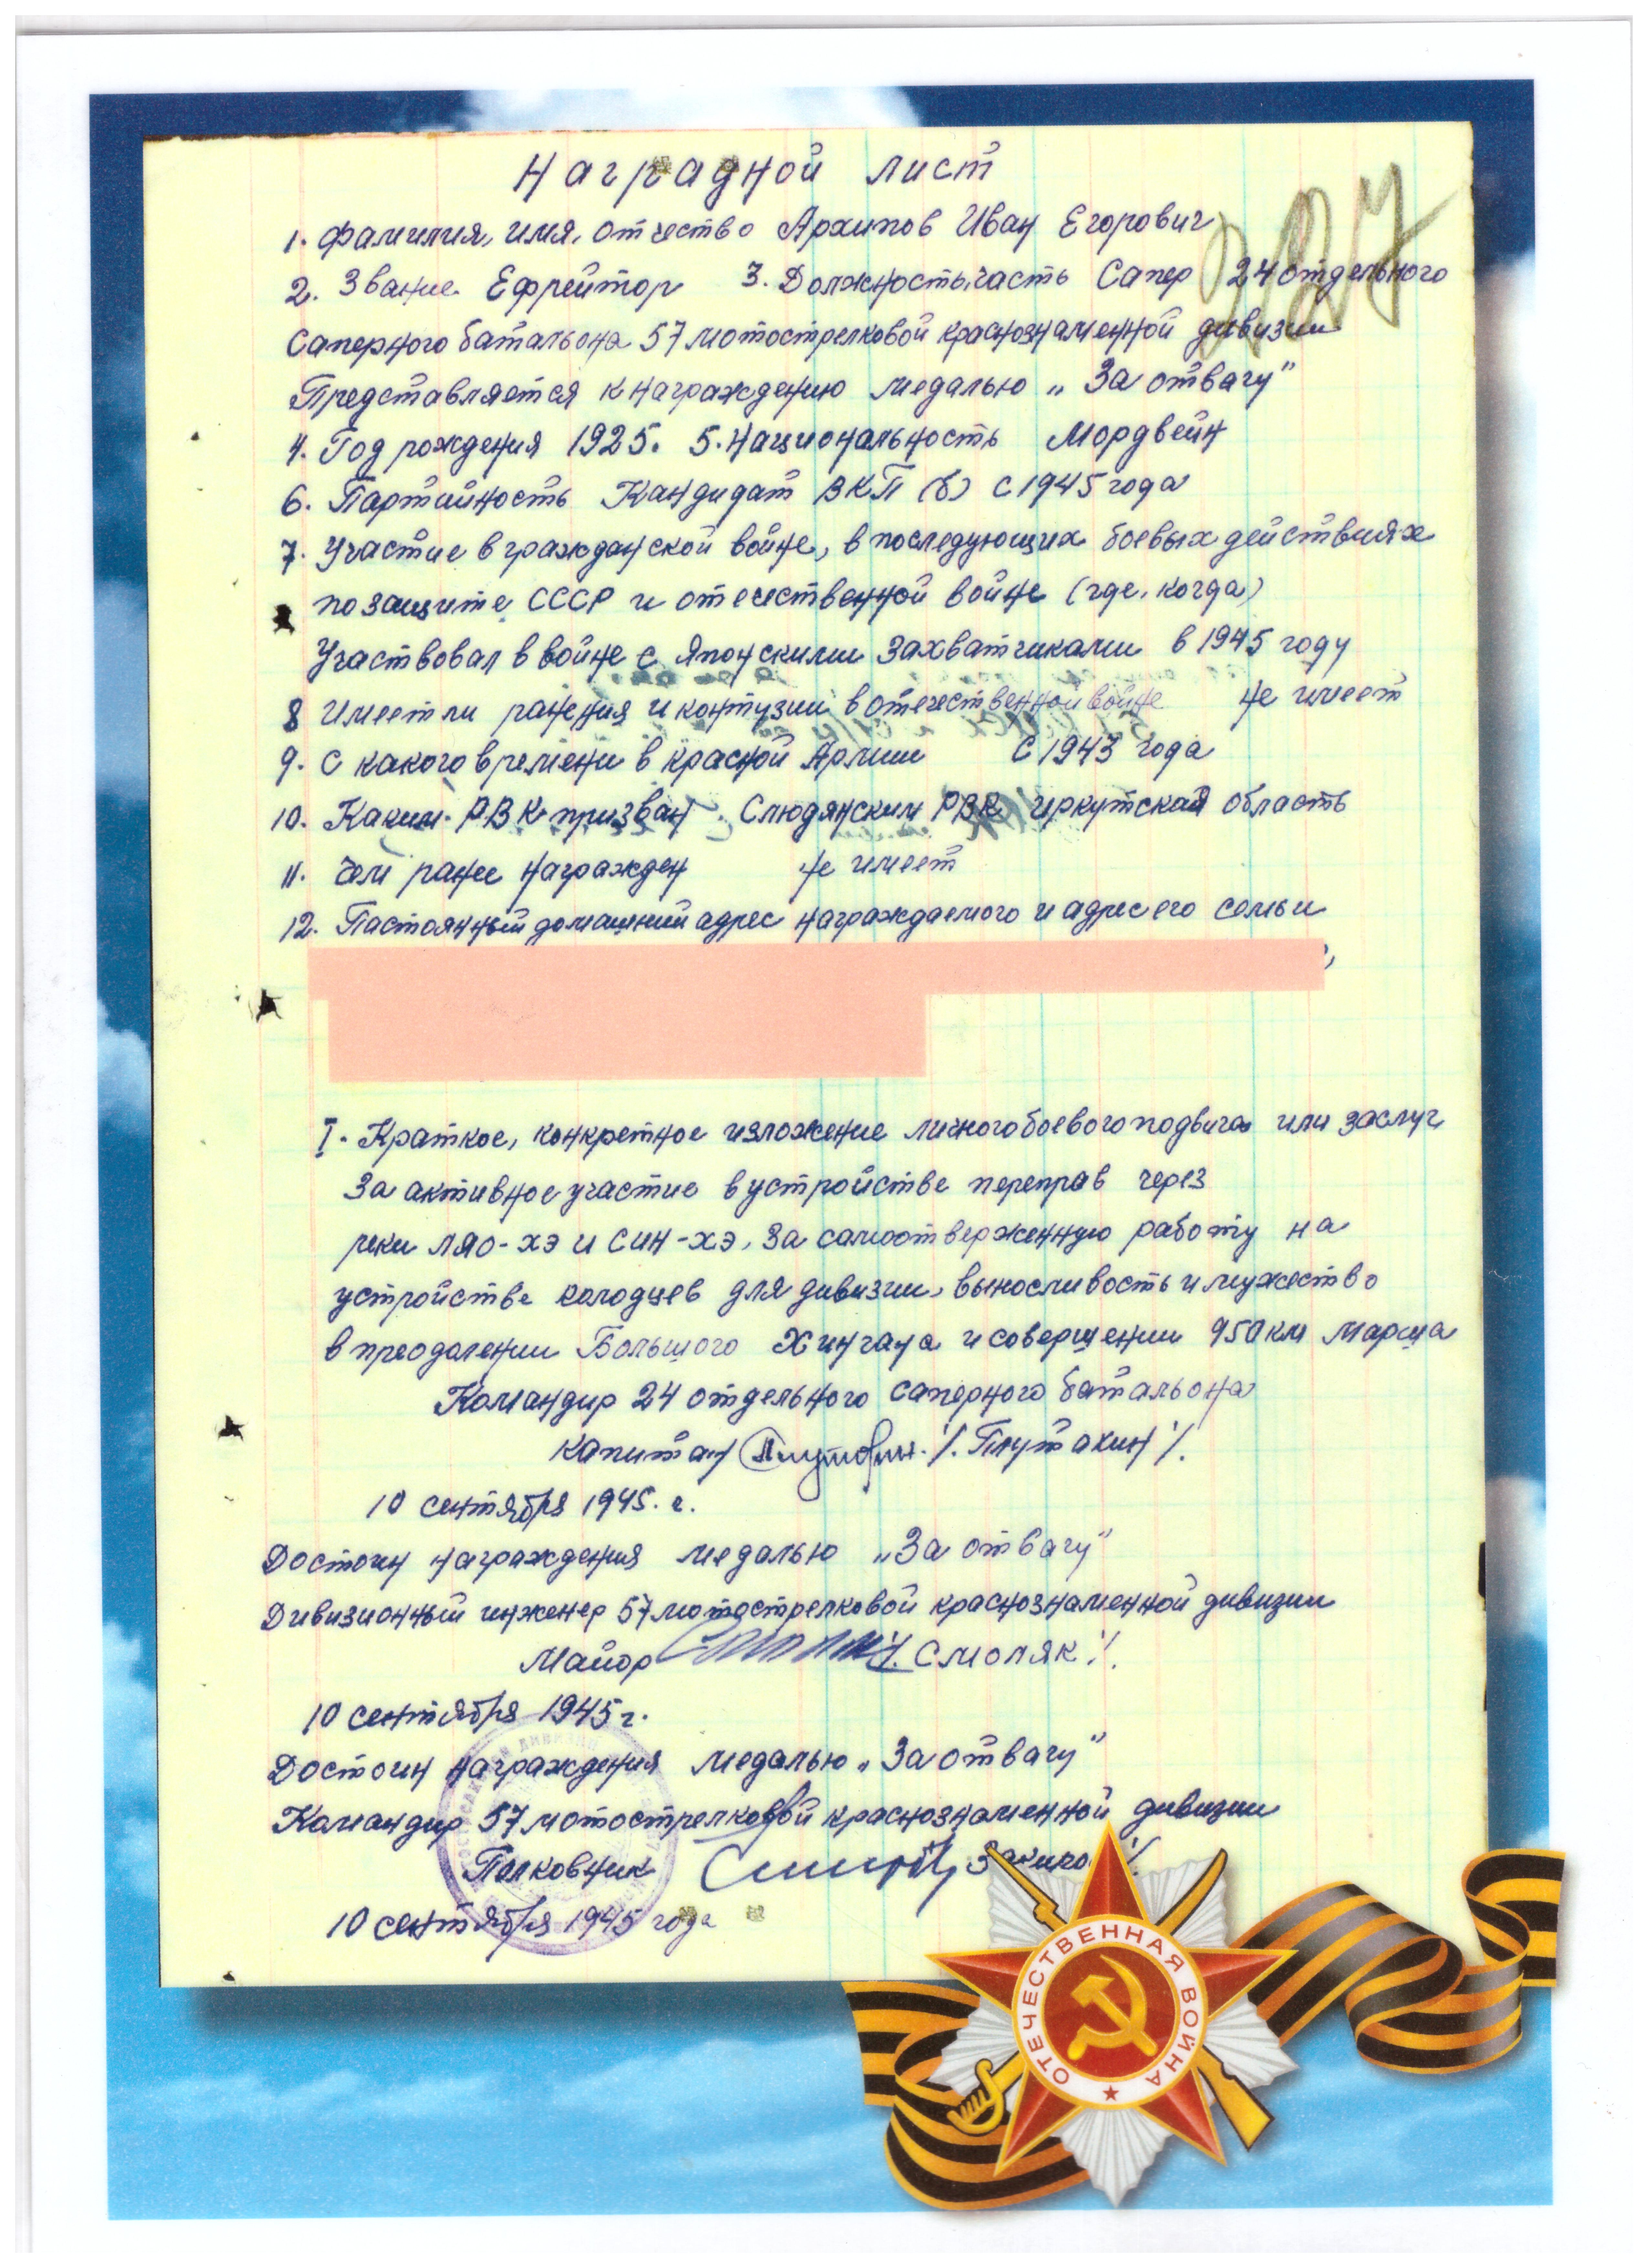 Наградной лист
1. Фамилия, имя, отчество Архипов Иван Егорович
2. Звание Ефрейтор 3. Должность, часть Сапер 24 отдельного
Саперного батальона 57 мотострелковой краснознаменной дивизии
Представляется к награждению медалью „За отвагу"
4. Год рождения 1925. 5. Национальность Мордвейн
6. Партийность Кандидат ВКП(б) с 1945 года
7. Участие в гражданской войне, в последующих боевых действиях
по защите СССР и отечественной войне (где, когда)
Участвовал в войне с Японскими захватчиками в 1945 году
8 Имеет ли ранения и контузии в отечественной войне не имеет
9. С какого времени в красной Армии С 1943 года
10. Каким РВК призван Слюдянским РВК иркутская область
11. Чем ранее награжден не имеет
12. Пастоянный домашний адрес награждаемого и адрес его семьи
I. Краткое, конкретное изложение личного боевого подвига или заслуг
За активное участие в устройстве переправ через
реки ляо-хэ и син-хэ, за самоотверженную работу на
устройстве колодцев для дивизии, выносливость и мужество
в преодалении Большого Хингана и совершении 950 км марша
Командир 24 отдельного саперного батальона
капитан /. Плутахин /.
10 сентября 1945. г.
Достоин награждения медалью „За отвагу"
Дивизионный инженер 57 мотострелковой краснознаменной дивизии
Майор /. Смоляк /.
10 сентября 1945 г.
Достоин награждения медалью „За отвагу"
Командир 57 мотострелковой краснознаменной дивизии
Полковник
10 сентября 1945 года
ОТЕЧЕСТВЕННАЯ ВОЙНА